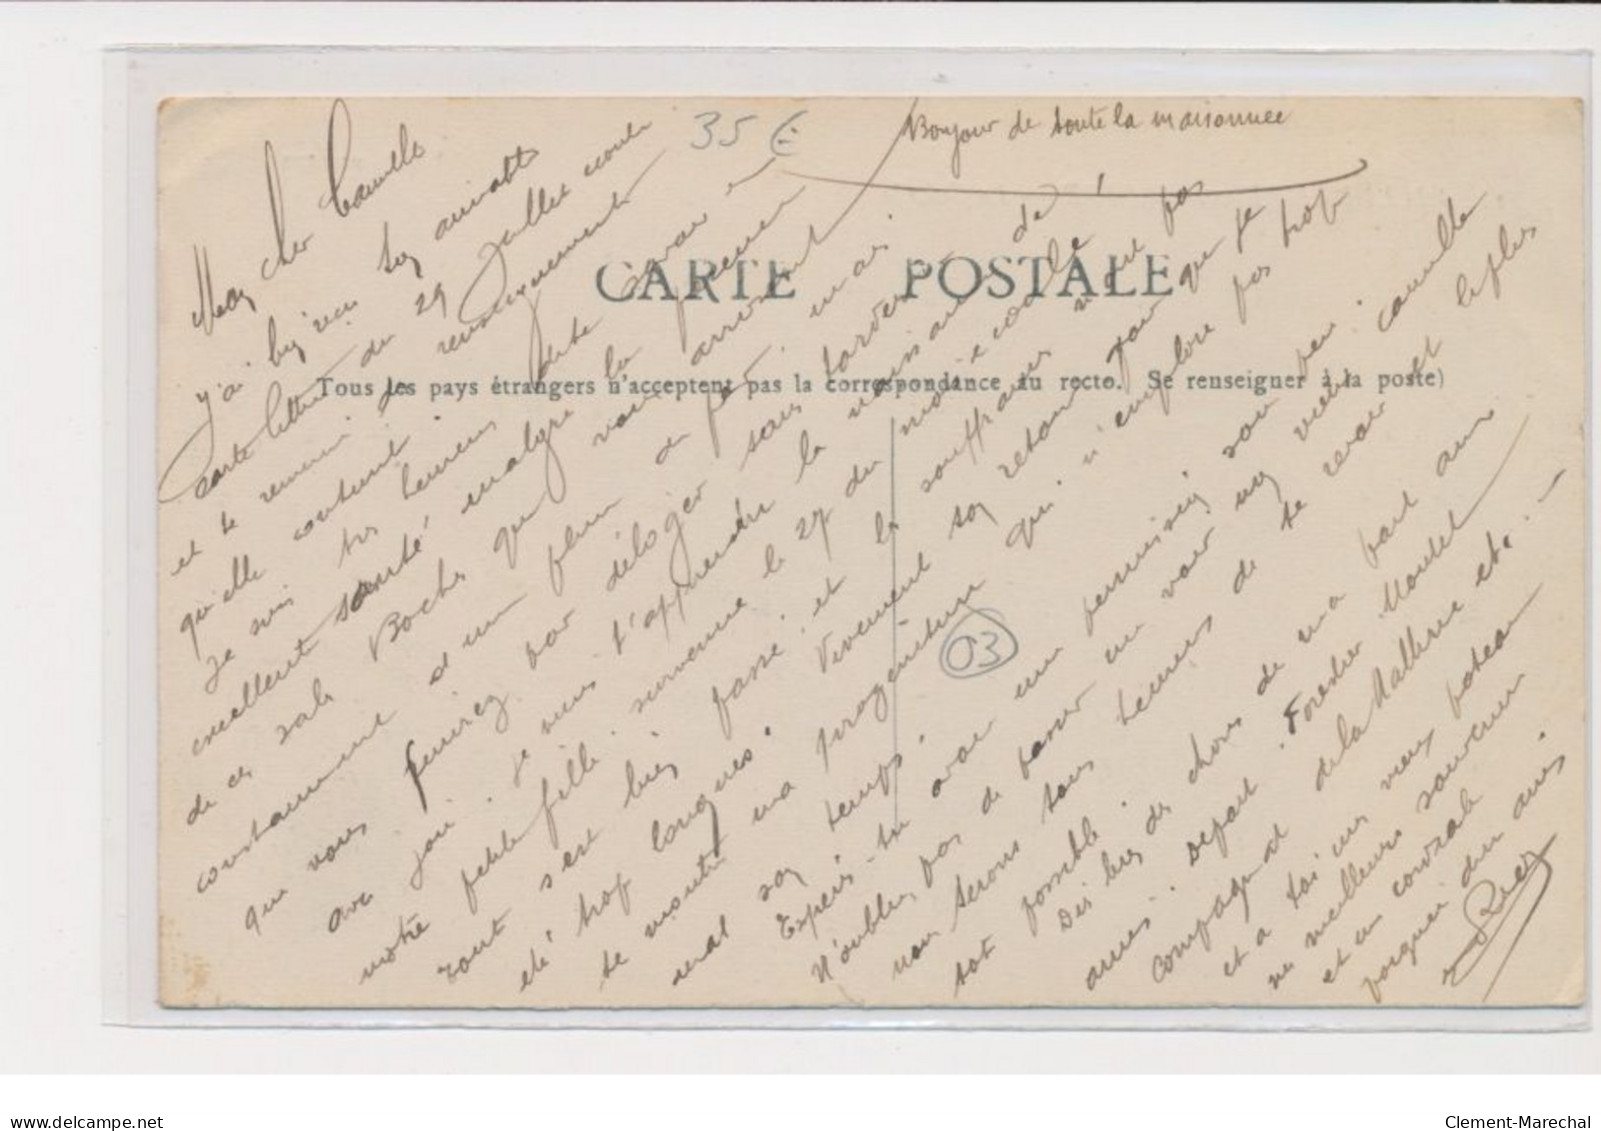 35 €
Bonjour de toute la maisonnée
CARTE POSTALE
Tous les pays étrangers n'acceptent pas la correspondance au recto. Se renseigner à la poste)
Mon cher Camille
j'ai bien reçu ton aimable
carte lettre du 29 Juillet écoulé
et te remercie du renseignement
qu'elle contient.
Je suis très heureux de te savoir en
excellente santé malgré la présence
de ces sales Boches qui vous arrosent
constamment d'un plomb de fer. mais
que vous finirez par déloger sans tarder
avec joie. Je viens t'apprendre la naissance de
notre petite fille survenue le 27 du mois écoulé
tout s'est bien passé. et les souffrances n'ont pas
été trop longues. Vivement ton retour pour que je
te montre ma progéniture qui n'emploie pas trop
mal son temps.
Espères-tu avoir une permission sous peu.
N'oublies pas de passer me voir mon vieux camille
nous serons tous heureux de te revoir et le plus
tôt possible.
Dis bien des choses de ma part aux
amis. Depail. Forestier Moulet
Compagnat de la Mallerie etc. -
et à toi mon vieux poteau
mes meilleurs souvenirs
et un cordiale
poignée d'un ami
03
www.delcampe.net
Clement-Marechal